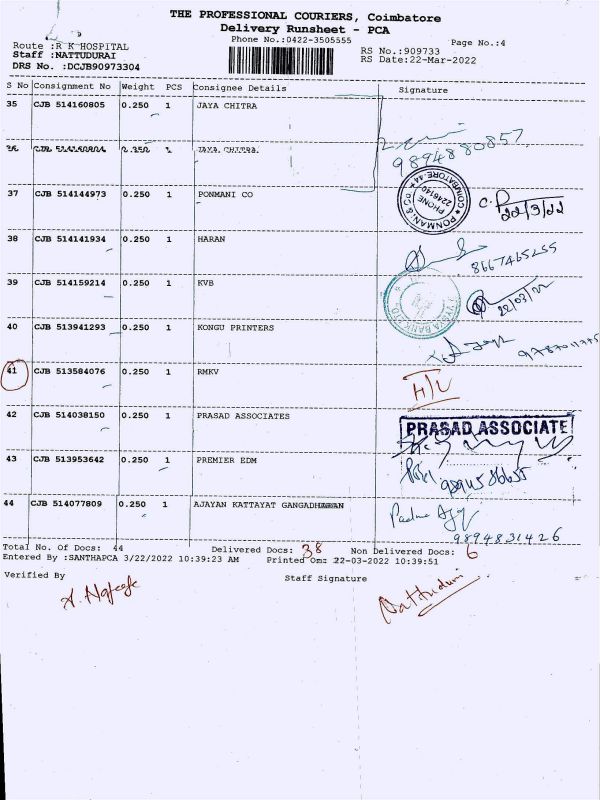 THE PROFESSIONAL COURIERS, Coimbatore
Delivery Runsheet - PCA
Phone No.:0422-3505555
Page No.:4
Route :R K HOSPITAL
Staff :NATTUDURAI
DRS No. :DCJB90973304
RS No.:909733
RS Date:22-Mar-2022
S No Consignment No Weight PCS Consignee Details Signature
35 CJB 514160805 0.250 1 JAYA CHITRA
36 CJB 514160804 0.250 1 JAYA CHITRA
9894880857
37 CJB 514144973 0.250 1 PONMANI CO
PONMANI & CO COIMBATORE-44
PHONE
2246140
22/3/22
38 CJB 514141934 0.250 1 HARAN
8667465255
39 CJB 514159214 0.250 1 KVB
VYSYA BANK LTD
22/03/22
40 CJB 513941293 0.250 1 KONGU PRINTERS
41 CJB 513584076 0.250 1 RMKV
H/L
42 CJB 514038150 0.250 1 PRASAD ASSOCIATES
PRASAD ASSOCIATE
43 CJB 513953642 0.250 1 PREMIER EDM
44 CJB 514077809 0.250 1 AJAYAN KATTAYAT GANGADHARAN
9894831426
Total No. Of Docs: 44 Delivered Docs: 38 Non Delivered Docs: 6
Entered By :SANTHAPCA 3/22/2022 10:39:23 AM Printed On: 22-03-2022 10:39:51
Verified By Staff Signature
Nattudurai